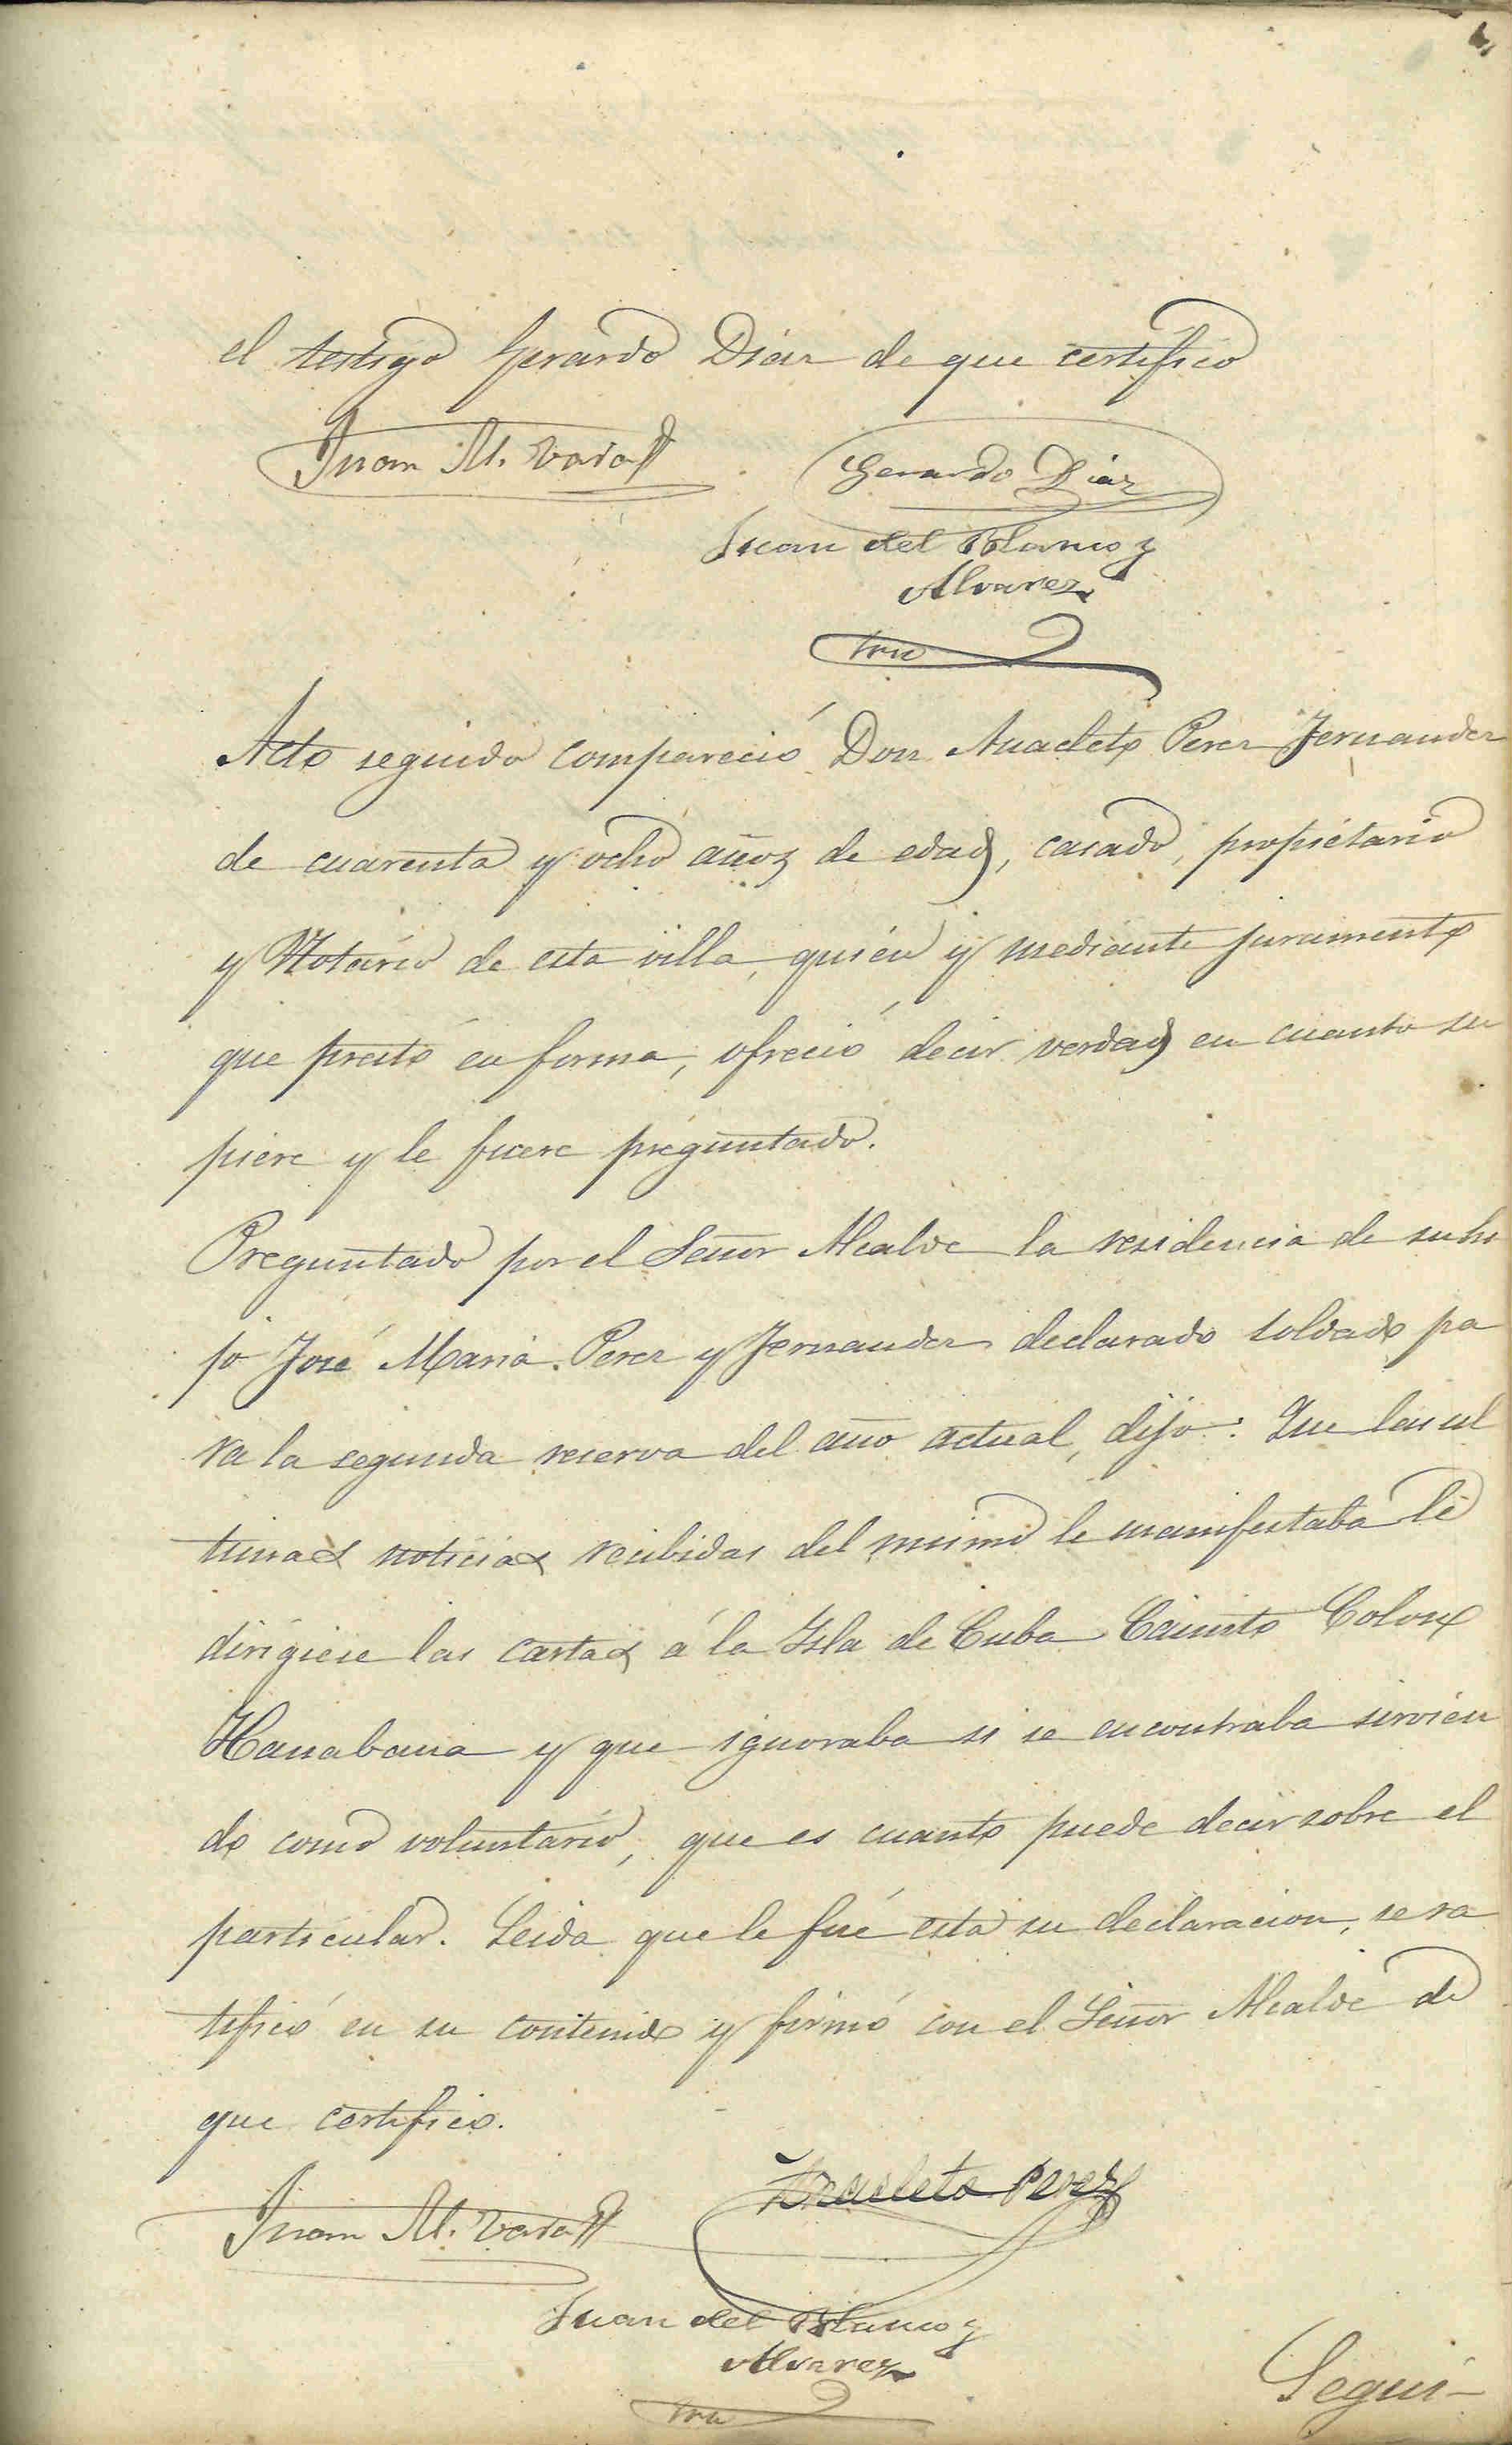 el testigo Gerardo Diaz de que certifico
Juan M. Gerardo Diaz
Juan del Blanco y
Alvarez
Srio
Acto seguido compareció Don Anacleto Perez Fernandez
de cuarenta y ocho años de edad, casado, propietario
y Notario de esta villa, quién y mediante juramento
que prestó en forma, ofreció decir verdad en cuanto su
piere y le fuere preguntado.
Preguntado por el Señor Alcalde la residencia de su hi
jo José Maria Perez y Fernandez declarado soldado pa
ra la segunda reserva del año actual, dijo: Que las ul
timas noticias recibidas del mismo le manifestaba le
dirigiese las cartas á la Isla de Cuba Caimito Colon
Hanabana y que ignoraba si se encontraba sirvien
do como voluntario, que es cuanto puede decir sobre el
particular. Leida que le fué esta su declaracion, se ra
tificó en su contenido y firmó con el Señor Alcalde de
que certifico.
Juan M. Anacleto Perez
Juan del Blanco y
Alvarez
Srio
Segui-